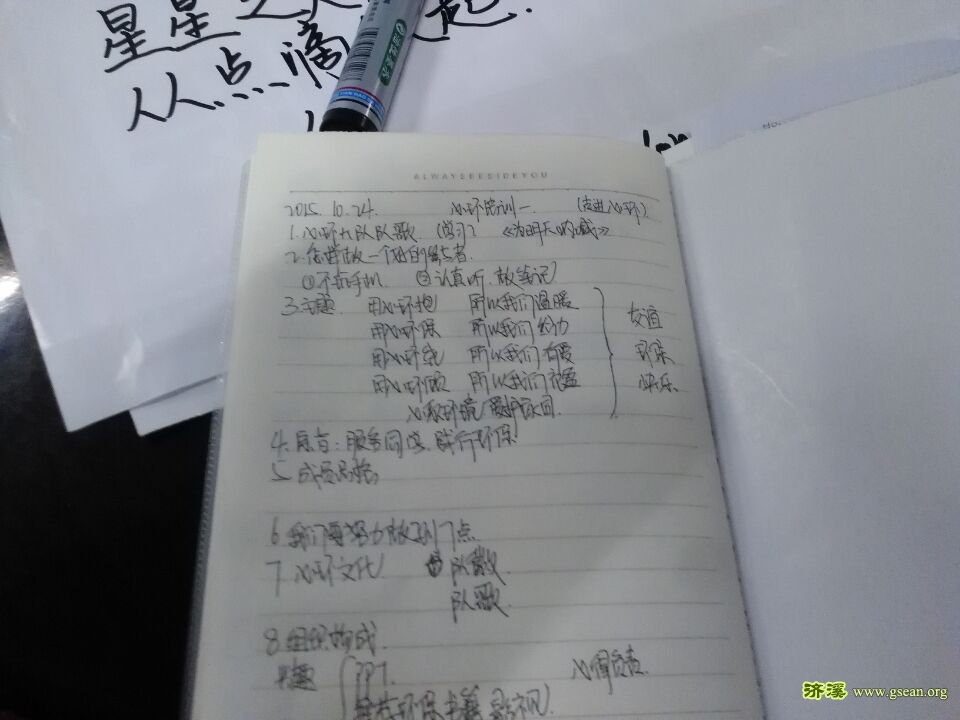 星星之
从点滴 起.
ALWAYSBESIDEYOU
2015.10.24. 心环培训一. (走进心环)
1.心环九队队歌 (学习) 《为明天呐喊》
2.怎样做一个好的 者.
①不玩手机 ②认真听,做笔记
3.主题 用心环抱 所以我们温暖
用心环保 所以我们给力
用心环 所以我们有爱
用心环 所以我们
心 环境 爱护 园.
友谊
环保
快乐
4. 服务同学, 践行环保
5.成员
6.我们要努力做到7点
7.心环文化 队徽
队歌
8.组织构成.
PPT. 负责.
环保
济溪 www.gsean.org